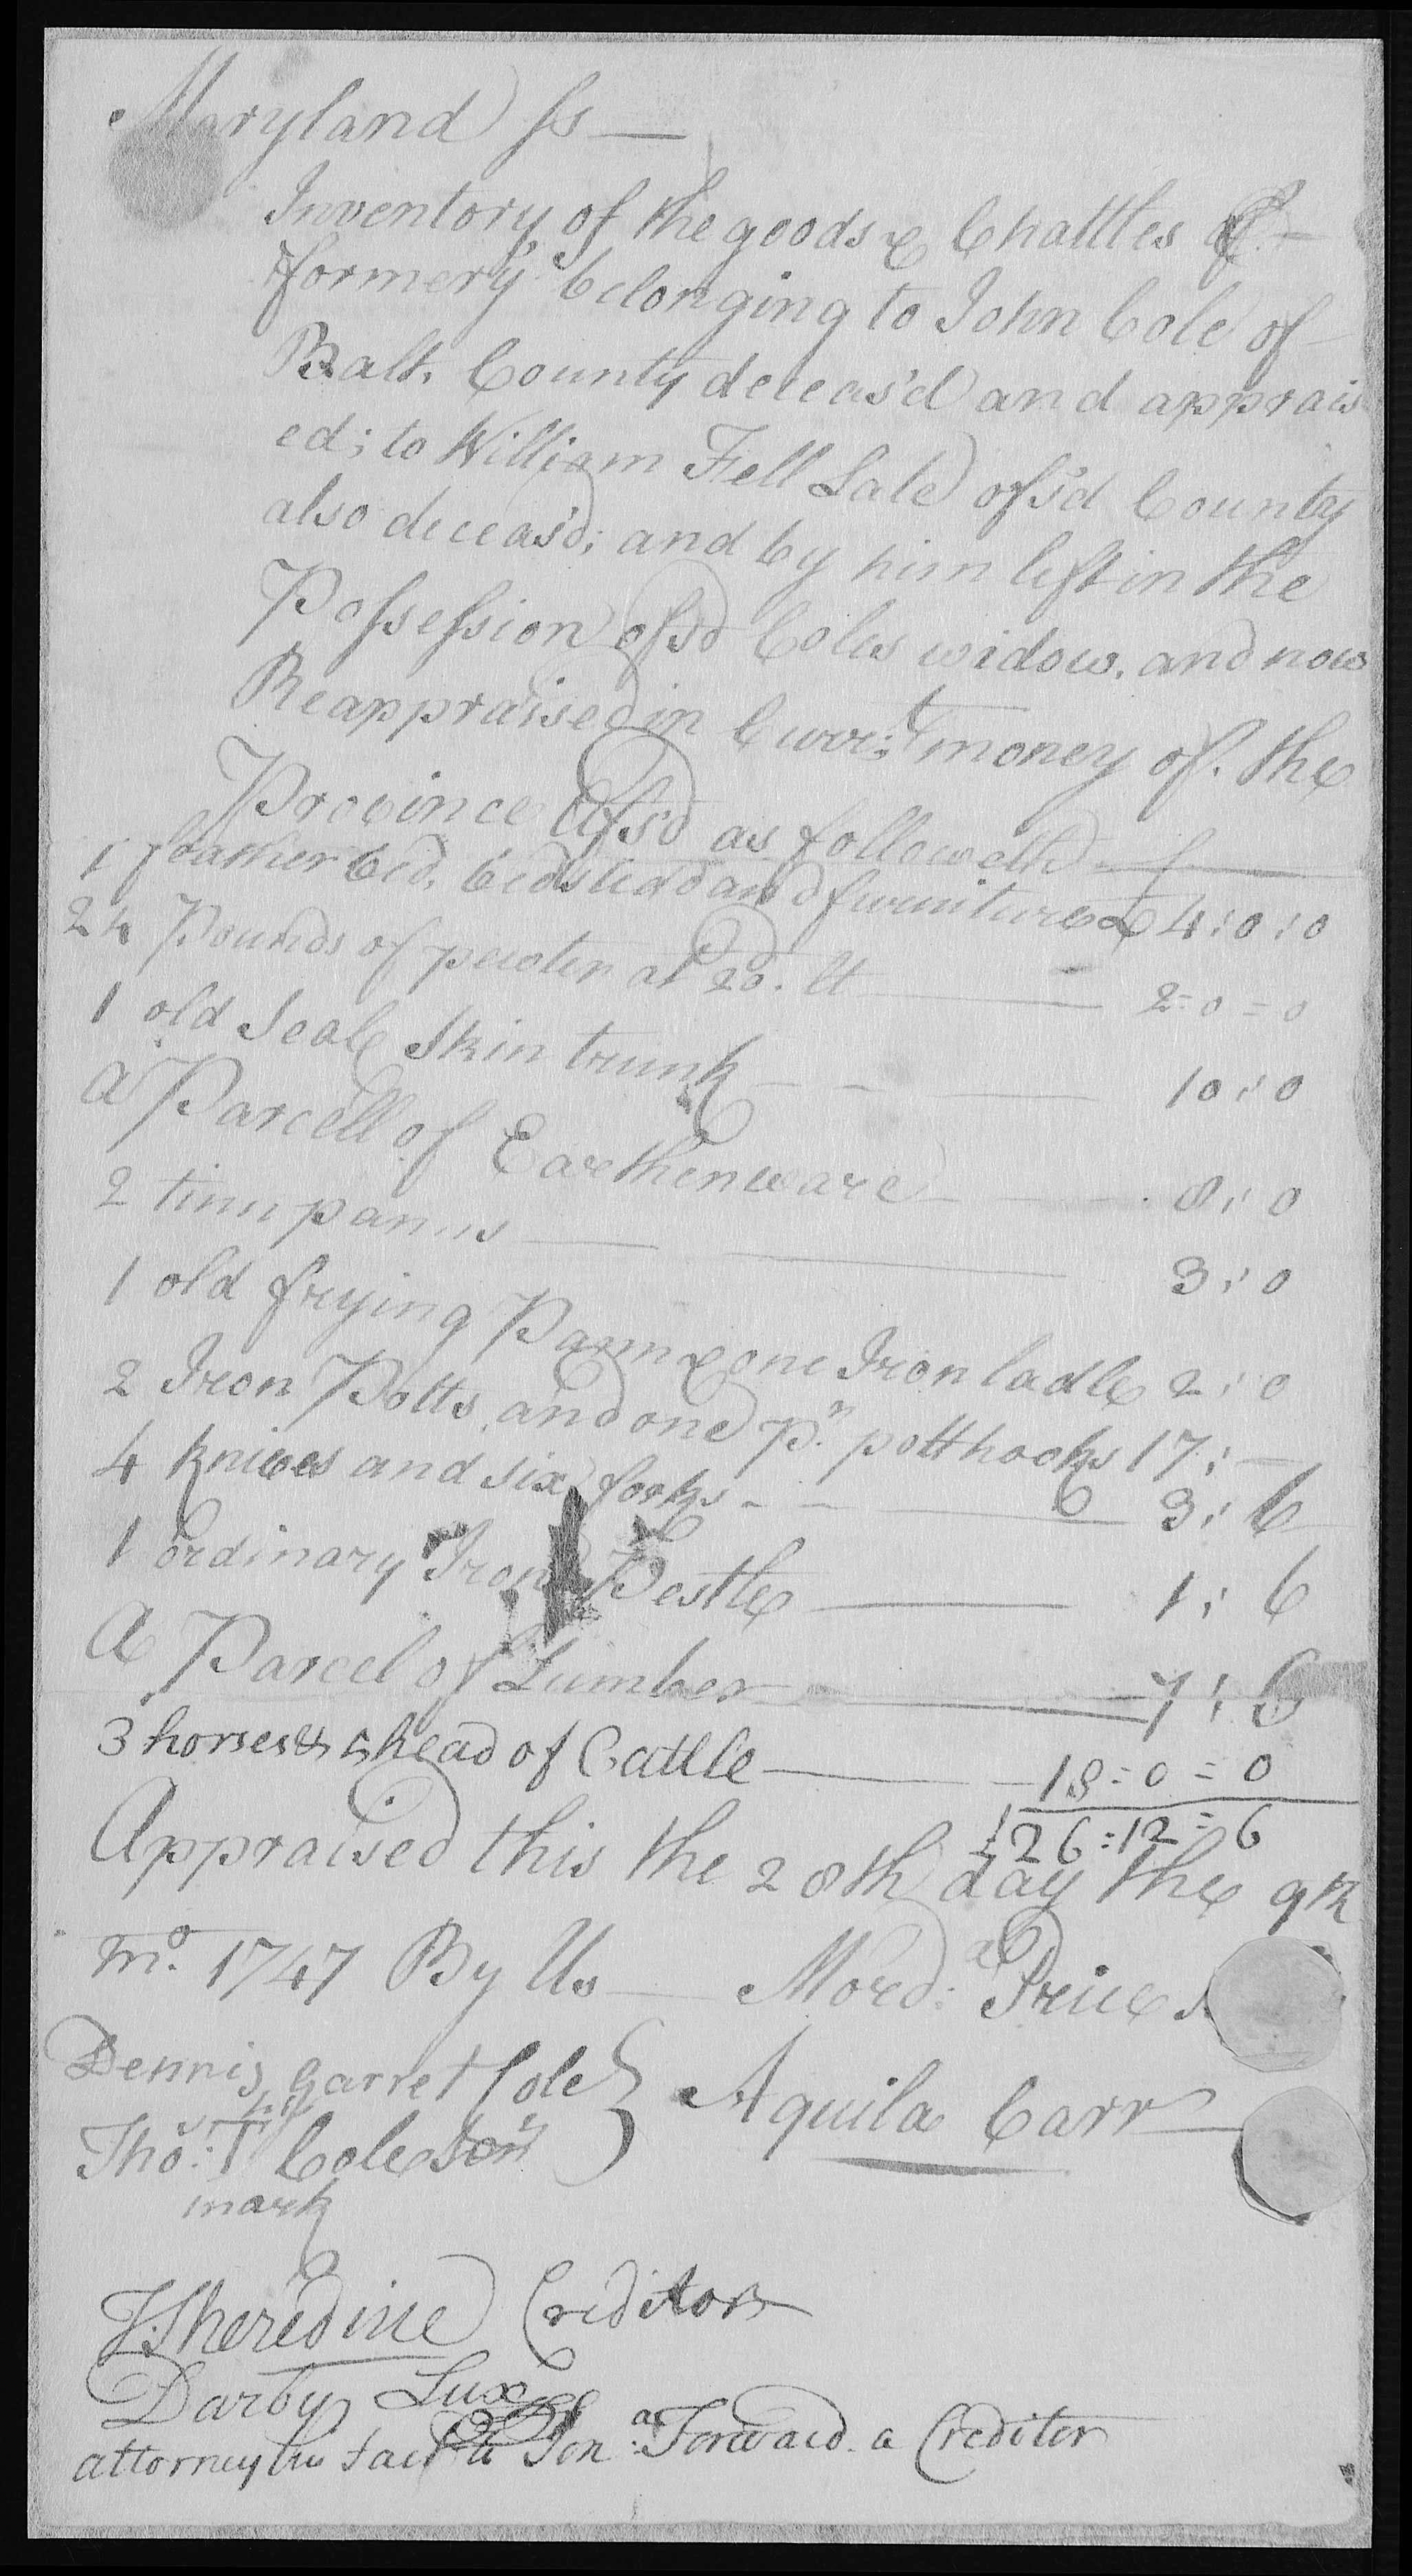 Maryland ss
Inventory of the goods & Chattles of
formerly belonging to John Cole of
Balt. County deceas'd and apprais
ed; to William Fell Late of s'd County
also deceas'd; and by him left in the
Possession of s'd Coles widow, and now
Reappraised in Curr:t money of. the
Province Afs'd as followeth
1 feather bed, bedstead and furniture £ 4:0:0
24 Pounds of pewter at 20d. lt 2=0=0
1 old Seale Skin trunk 10:0
a Parcell of Earthenware 8:0
2 tinn panns 3:0
1 old frying Pann & one Iron ladle 2:0
2 Iron Potts, and one p.r potthooks 17:
4 knives and six forks 3:6
1 ordinary Iron Pestle 1:6
A Parcel of Lumber 7:6
3 horses & 5 head of Cattle 18=0=0
£26=12=6
Appraised this the 28th day the 9th
mo. 1747 By Us Mord:a Price
Dennis Garret Cole Aquila Carr
Tho: T Cole
mark
T: Sheredine Creditors
Darby Lux
attorney in fact to Jon:a Forward a Creditor